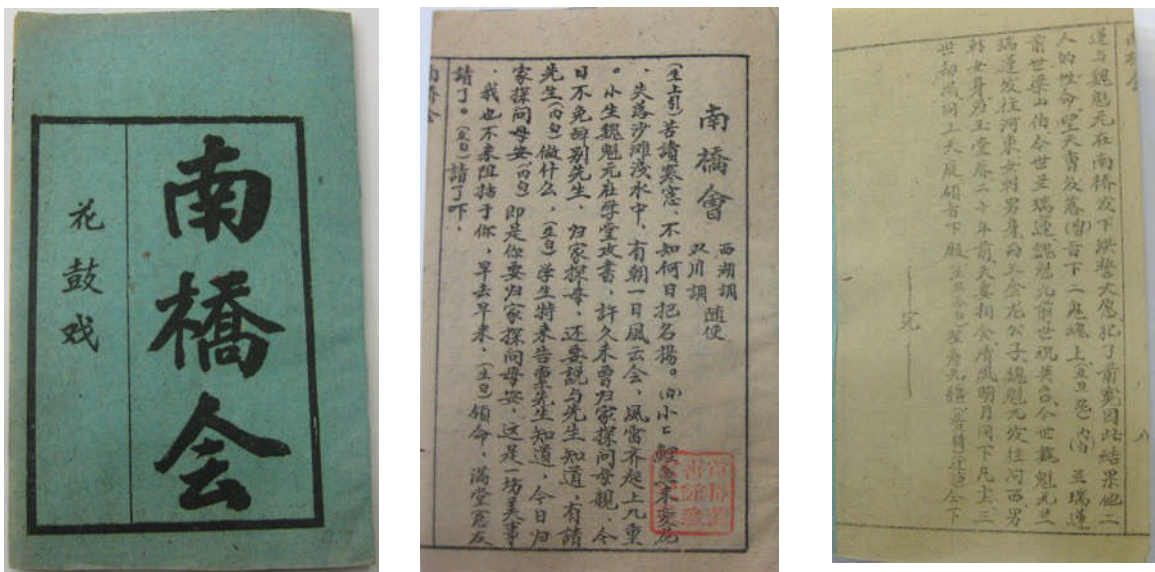 南橋会
花鼓戏
南橋會
西湖調
双川調
随便
(生上引)苦讀寒窓、不知何日把名揚。(白)小亡鯉魚未变龙
、失落沙滩浅水中、有朝一日風云会、風雷齐起上九重
。小生魏魁元在学堂攻書、許久未曾归家探問母親、今
日不免辞别先生、归家探母、还要説与先生知道、有請
先生(内白)做什么、(生白)学生特来告禀先生知道、今日归
家探问母安(内白)即是你要归家探问母安、这是一坊美事
、我也不来阻挡于你、早去早来、(生白)領命、满堂窓友
請了。(内白)請了下、
南橋会
南橋会
八
蓮与魏魁元在南桥发下洪誓大愿、犯了前宪因此結果他二
人的性命、望天曹发落(曹)旨下二鬼魂上 (内白) 兰瑞蓮
前世梁山伯今世兰瑞蓮、魏魁元前世祝英台、今世魏魁元兰
瑞蓮发往河東女转男身、为王金龙公子、魏魁元发往河西、男
转女身为玉堂春二十年前、夫妻相会、清風明月同下凡尘、三
世却满同上天庭領旨下殿
完